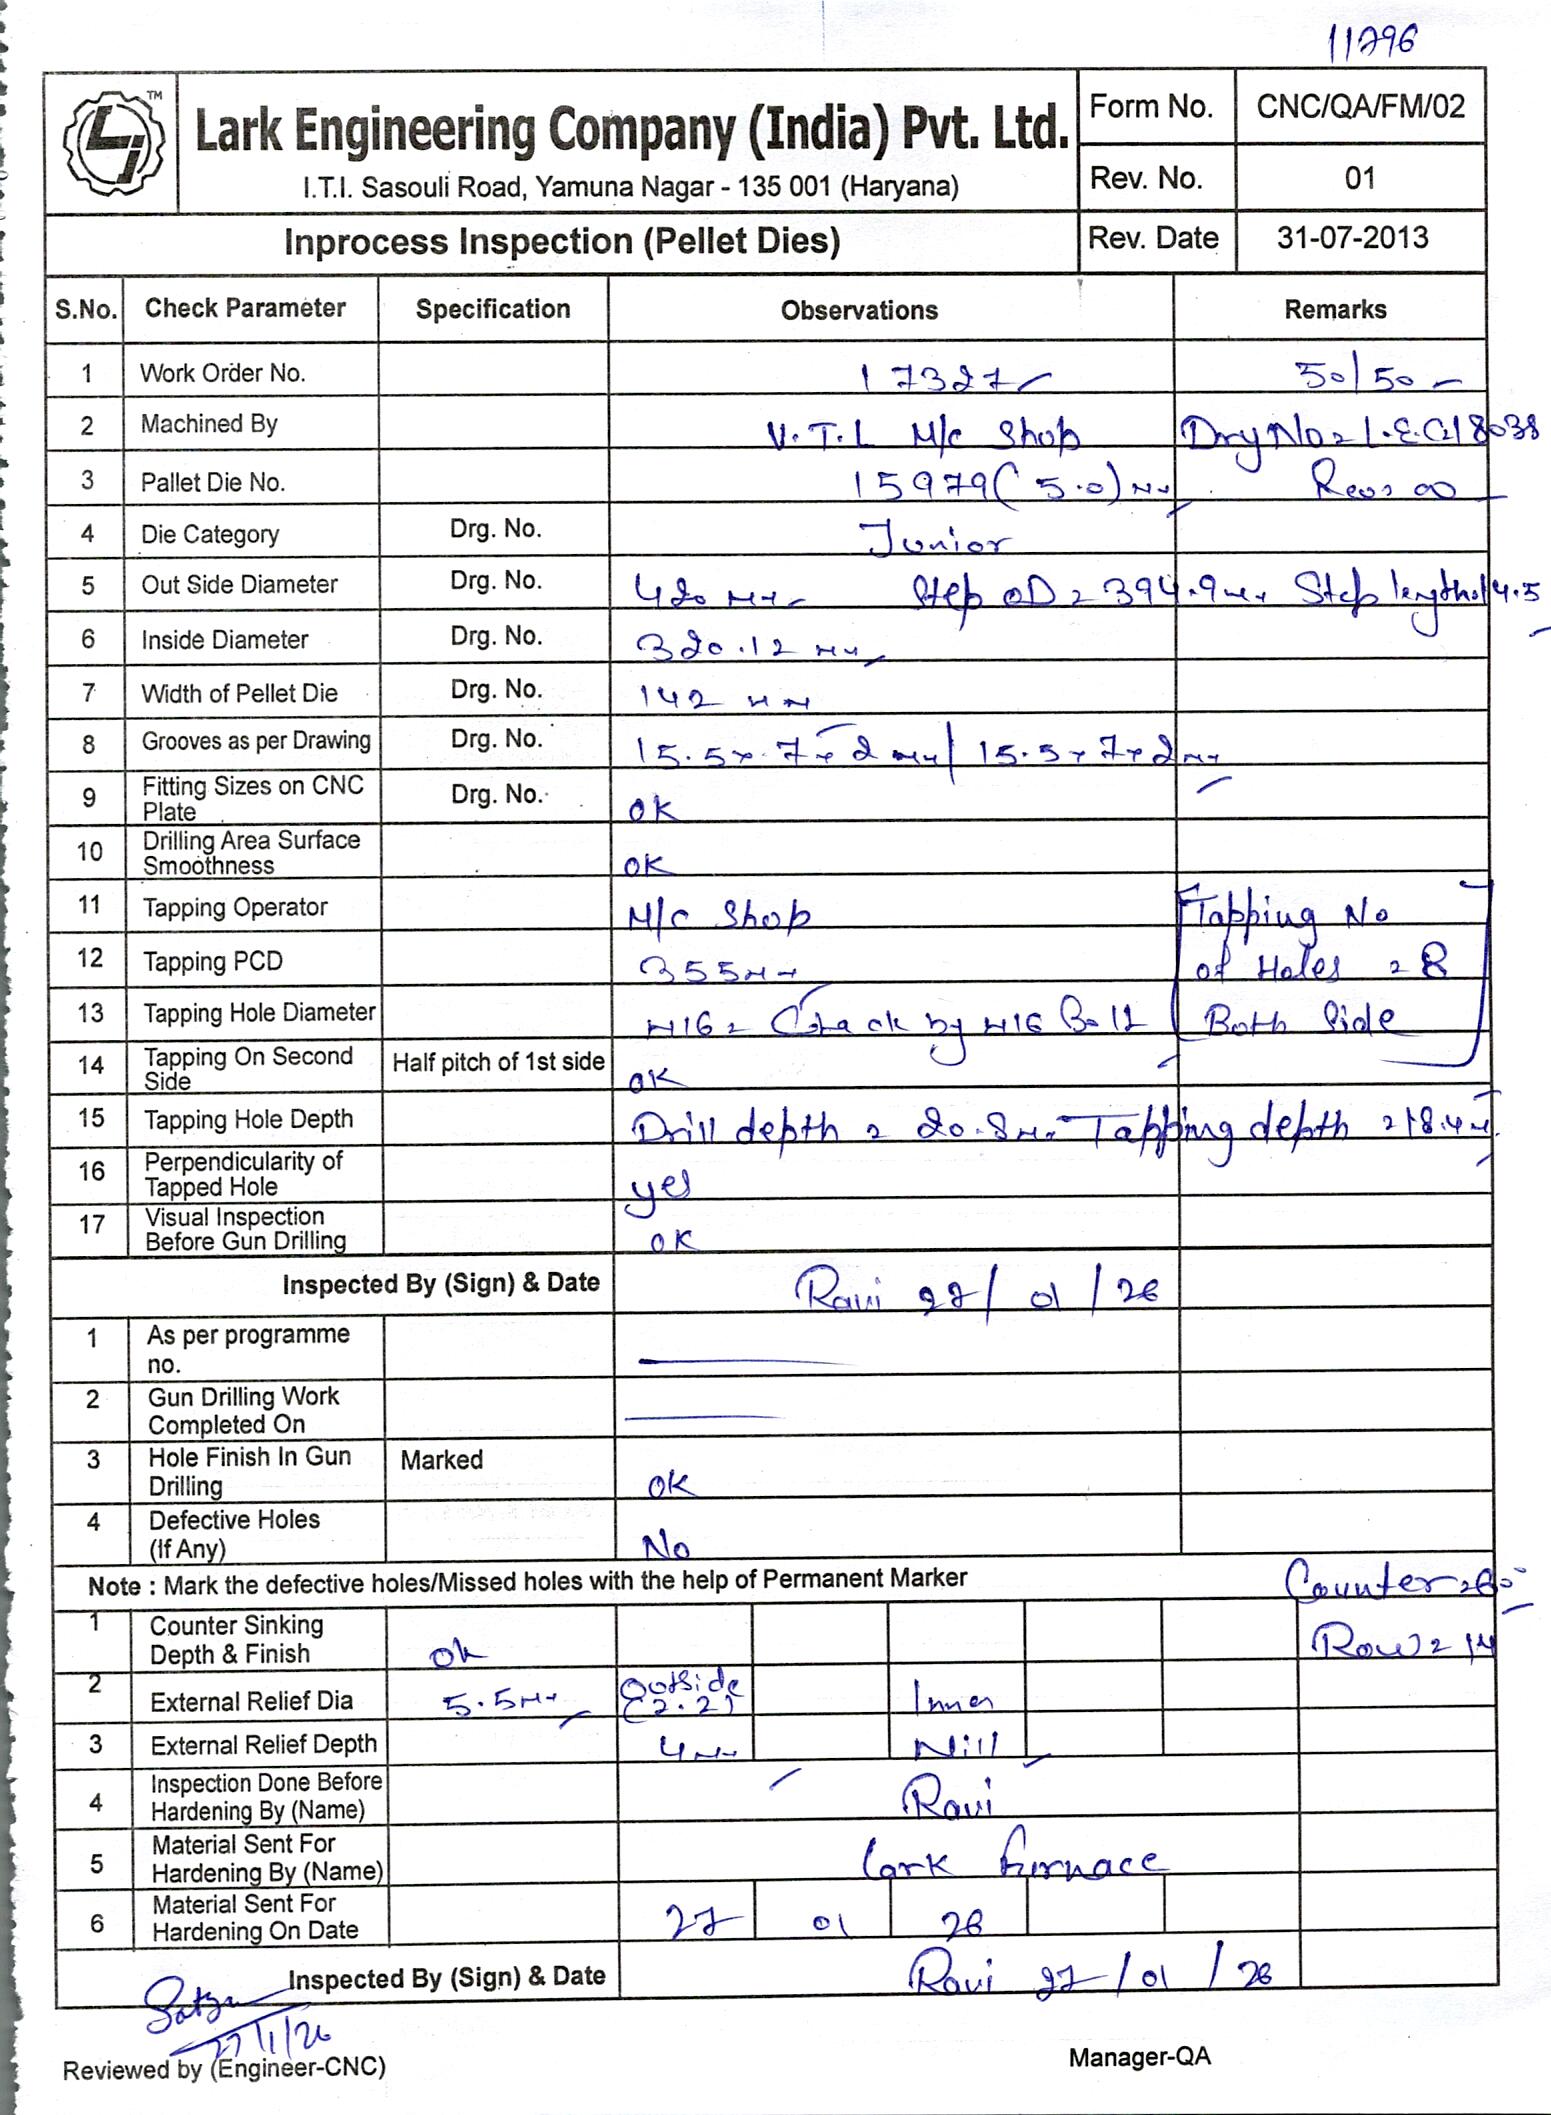 11296
TM
Lark Engineering Company (India) Pvt. Ltd.
I.T.I. Sasouli Road, Yamuna Nagar - 135 001 (Haryana)
Form No. CNC/QA/FM/02
Rev. No. 01
Inprocess Inspection (Pellet Dies) Rev. Date 31-07-2013
S.No. Check Parameter Specification Observations Remarks
1 Work Order No. 17327 50/50
2 Machined By V.T.L M/c Shop
3 Pallet Die No. 15979 (5.0) mm
4 Die Category Drg. No. Junior
5 Out Side Diameter Drg. No. 420 mm Step OD = 394.9 mm Step length 14.5
6 Inside Diameter Drg. No. 320.12 mm
7 Width of Pellet Die Drg. No. 142 mm
8 Grooves as per Drawing Drg. No. 15.5 x 7 x 2 mm / 15.5 x 7 x 2 mm
9 Fitting Sizes on CNC Plate Drg. No. OK
10 Drilling Area Surface Smoothness OK
11 Tapping Operator M/c Shop Tapping No
12 Tapping PCD 355mm of Holes = 8
13 Tapping Hole Diameter M16 = by M16 Bolt Both Side
14 Tapping On Second Side Half pitch of 1st side OK
15 Tapping Hole Depth Drill depth = 20.8 mm Tapping depth = 18.4 mm
16 Perpendicularity of Tapped Hole yes
17 Visual Inspection Before Gun Drilling OK
Inspected By (Sign) & Date Ravi 27/01/26
1 As per programme no.
2 Gun Drilling Work Completed On
3 Hole Finish In Gun Drilling Marked OK
4 Defective Holes (If Any) No
Note : Mark the defective holes/Missed holes with the help of Permanent Marker Counter
1 Counter Sinking Depth & Finish Ok Row = 14
2 External Relief Dia 5.5mm Outside (2.2) Inner
3 External Relief Depth 4mm Nill
4 Inspection Done Before Hardening By (Name) Ravi
5 Material Sent For Hardening By (Name) Lark Furnace
6 Material Sent For Hardening On Date 27 01 26
Inspected By (Sign) & Date Ravi 27/01/26
27/1/26
Reviewed by (Engineer-CNC) Manager-QA